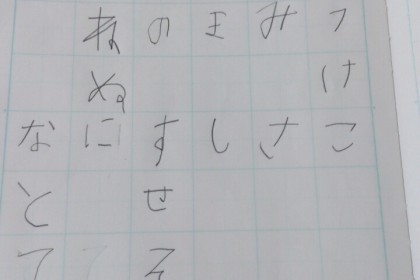 けこ
みさ
し
のすせそ
ねぬに
なとて